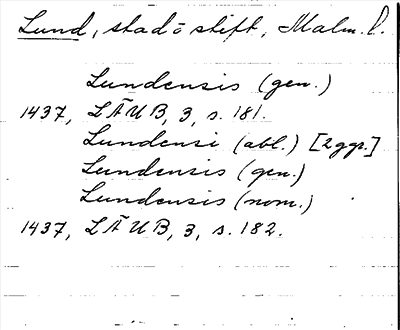 Lund, stad o stift, Malm. l.
Lundensis (gen.)
1437, LÄUB, 3, s. 181.
Lundensi (abl.) [2 ggr.]
Lundensis (gen.)
Lundensis (nom.)
1437, LÄUB, 3, s. 182.